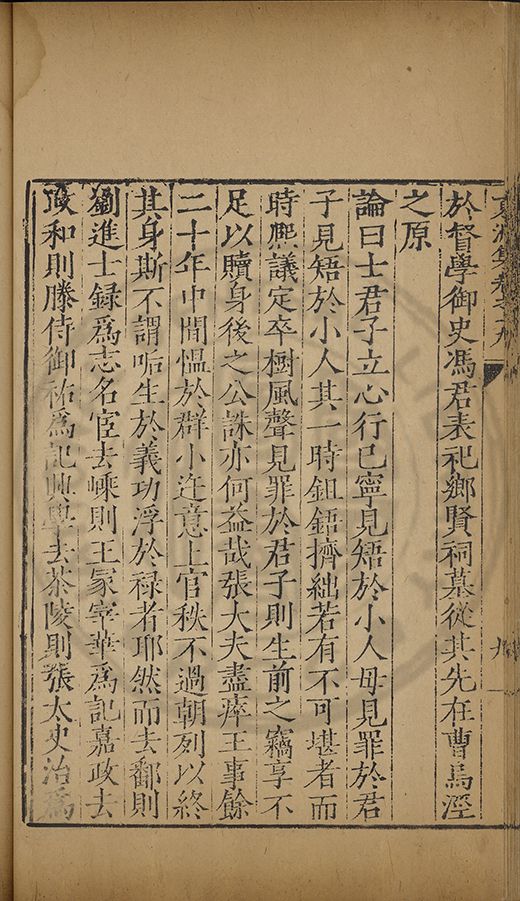 於督學御史馮君表祀鄉賢祠墓從其先在曹烏涇
之原
論曰士君子立心行已寧見矯於小人毋見罪於君
子見矯於小人其一時鉏鋙擠絀若有不可堪者而
時熙議定卒樹風聲見罪於君子則生前之竊享不
足以贖身後之公誅亦何益哉張大夫盡瘁王事餘
二十年中間愠於群小迕意上官秩不過朝列以終
其身斯不謂垢生於義功浮於祿者耶然而去鄱則
劉進士録爲志名宦去嵊則王冢宰華爲記嘉政去
政和則滕侍御祐爲記興學去茶陵則張太史治爲
集卷之九
九